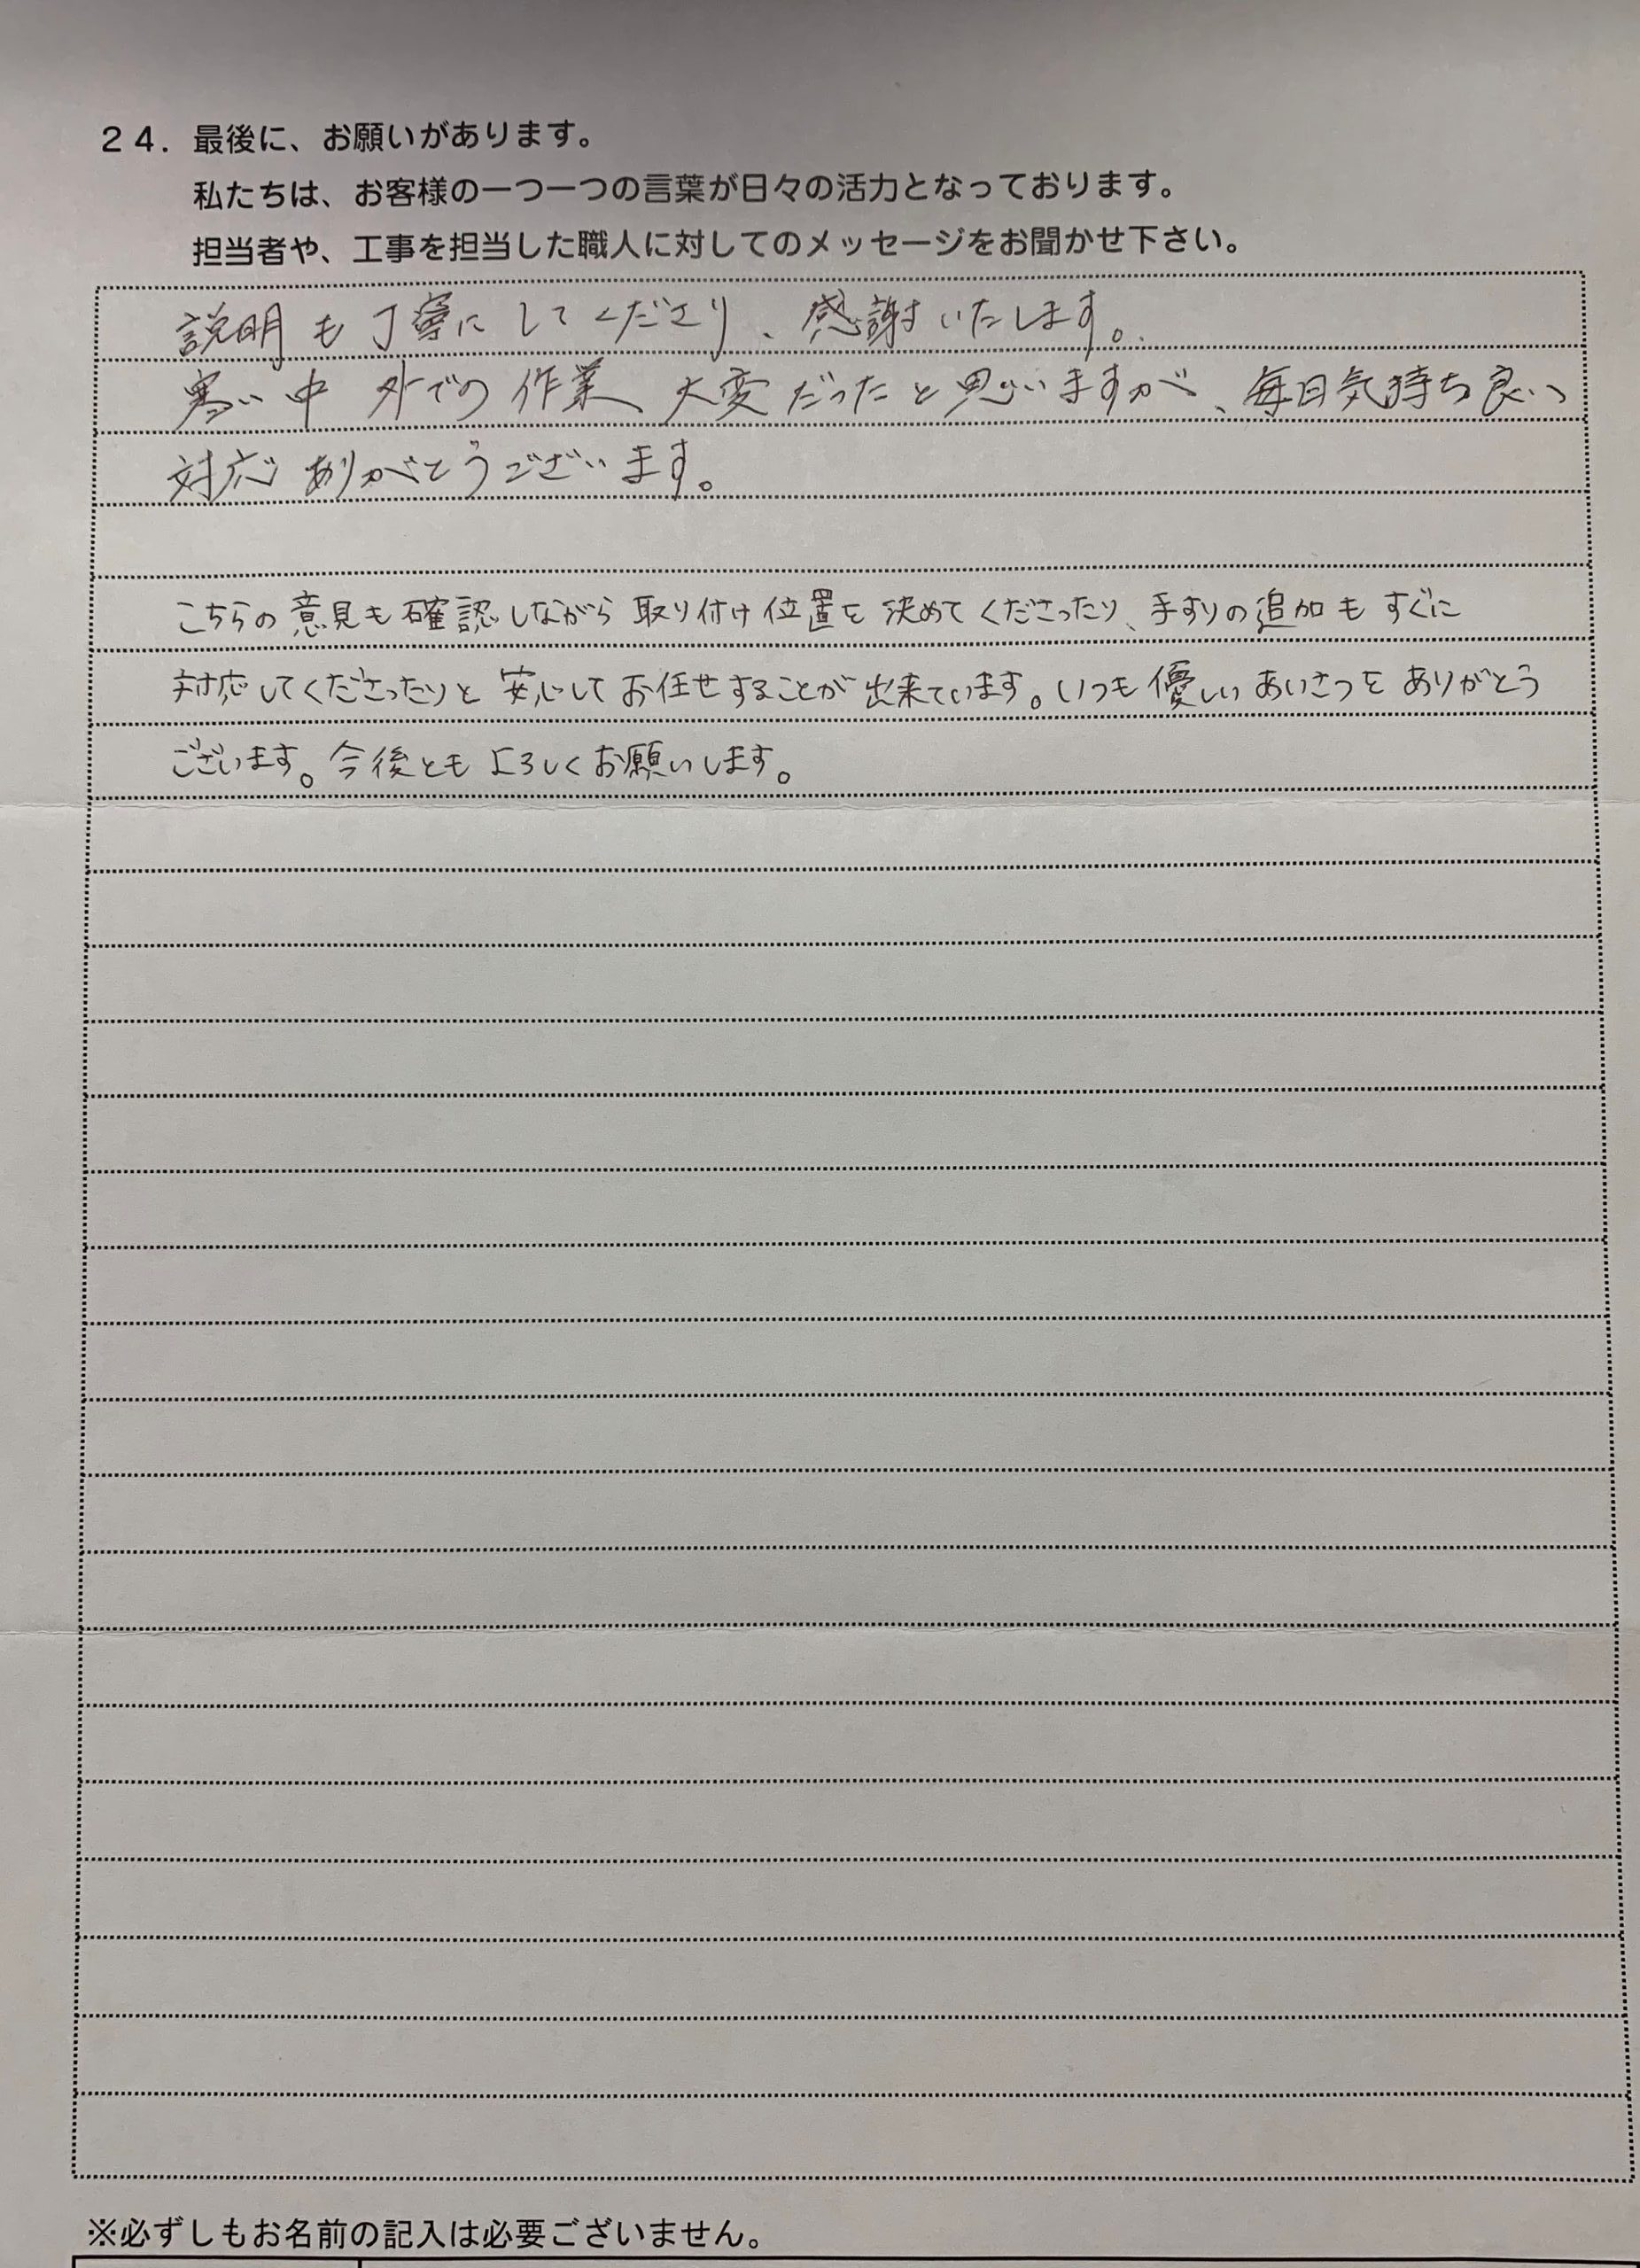 ２４．最後に、お願いがあります。
私たちは、お客様の一つ一つの言葉が日々の活力となっております。
担当者や、工事を担当した職人に対してのメッセージをお聞かせ下さい。
説明も丁寧にしてくださり、感謝いたします。
寒い中 外での作業 大変だったと思いますが、毎日気持ち良い
対応ありがとうございます。
こちらの意見も確認しながら取り付け位置を決めてくださったり、手すりの追加もすぐに
対応してくださったりと安心してお任せすることが出来ています。いつも優しいあいさつをありがとう
ございます。今後ともよろしくお願いします。
※必ずしもお名前の記入は必要ございません。